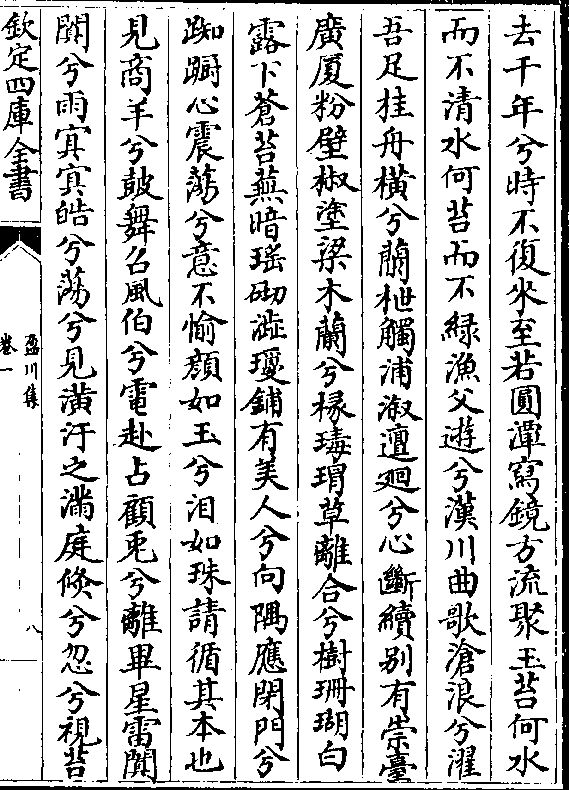 去千年兮時不復來至若圓潭寫鏡方流聚玉苔何水
而不清水何苔而不緑漁父遊兮漢川曲歌滄浪兮濯
吾足桂舟橫兮蘭枻觸浦溆邅廻兮心斷續别有崇臺
廣厦粉壁椒塗梁木蘭兮椽瑇瑁草離合兮樹珊瑚白
露下蒼苔蕪暗瑶砌澁瓊鋪有美人兮向隅應閉門兮
踟蹰心震蕩兮意不愉顔如玉兮泪如珠請循其本也
見商羊兮鼓舞召風伯兮電赴占顧兎兮離畢星雷闐
闐兮雨㝠㝠皓兮蕩兮見潢汙之滿庭倐兮忽兮視苔
欽定四庫全書
盈川集
卷一
八